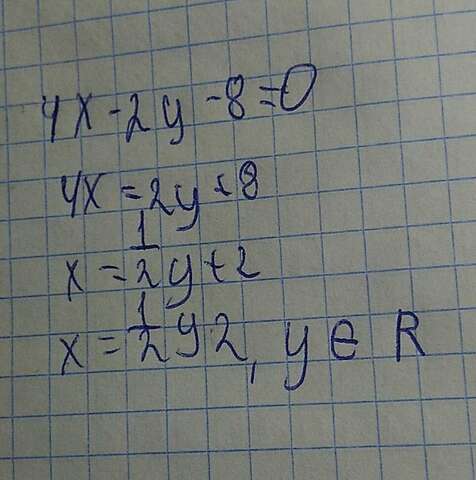 4x - 2y - 8 = 0
4x = 2y + 8
x = 1/2 y + 2
x = 1/2 y 2, y ∈ R